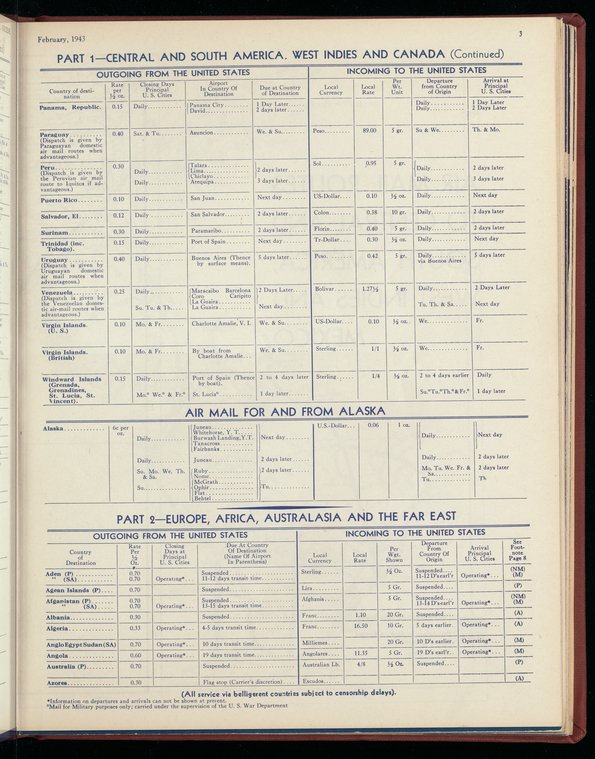 February, 1943 3
PART 1—CENTRAL AND SOUTH AMERICA, WEST INDIES AND CANADA (Continued)
OUTGOING FROM THE UNITED STATES INCOMING TO THE UNITED STATES
Country of desti-nation Rate per ½ oz. Closing Days Principal U. S. Cities Airport In Country Of Destination Due at Country of Destination Local Currency Local Rate Per Wt. Unit Departure from Country of Origin Arrival at Principal U. S. Cities
Panama, Republic. 0.15 Daily Panama City 1 Day Later Daily 1 Day Later
David 2 days later Daily 2 Days Later
Paraguay 0.40 Sat. & Tu. Asuncion We. & Su. Peso 89.00 5 gr. Su & We. Th. & Mo.
(Dispatch is given by
Paraguayan domestic
air mail routes when
advantageous.)
Peru 0.30 Talara Sol 0.95 5 gr.
(Dispatch is given by Daily Lima 2 days later Daily 2 days later
the Peruvian air mail Chiclayo
route to Iquitos if ad- Daily Arequipa 3 days later Daily 3 days later
vantageous.)
Puerto Rico 0.10 Daily San Juan Next day US-Dollar 0.10 ½ oz. Daily Next day
Salvador, El 0.12 Daily San Salvador 2 days later Colon 0.38 10 gr. Daily 2 days later
Surinam 0.30 Daily Paramaribo 2 days later Florin 0.40 5 gr. Daily 2 days later
Trinidad (inc. 0.15 Daily Port of Spain Next day Tr-Dollar 0.30 ½ oz. Daily Next day
Tobago).
Uruguay 0.40 Daily Buenos Aires (Thence 5 days later Peso 0.42 5 gr. Daily 5 days later
(Dispatch is given by by surface means). via Buenos Aires
Uruguayan domestic
air mail routes when
advantageous.)
Venezuela 0.25 Daily Maracaibo Barcelona 2 Days Later Bolivar 1.27½ 5 gr. Daily 2 Days Later
(Dispatch is given by Coro Caripito
the Venezuelan domes- La Guaira
tic air-mail routes when Su. Tu. & Th. La Guaira Next day Tu. Th. & Sa. Next day
advantageous.)
Virgin Islands. 0.10 Mo. & Fr. Charlotte Amalie, V. I. We. & Su. US-Dollar 0.10 ½ oz. We. Fr.
(U. S.)
Virgin Islands. 0.10 Mo. & Fr. By boat from We. & Su. Sterling 1/1 ½ oz. We. Fr.
(British) Charlotte Amalie
Windward Islands 0.15 Daily Port of Spain (Thence 2 to 4 days later Sterling 1/4 ½ oz. 2 to 4 days earlier Daily
(Grenada, by boat).
Grenadines,
St. Lucia, St. Mo.* We.* & Fr.* St. Lucia* 1 day later Su.*Tu.*Th.*&Fr.* 1 day later
Vincent).
AIR MAIL FOR AND FROM ALASKA
Alaska 6c per oz. Juneau U.S.-Dollar 0.06 1 oz.
Whitehorse, Y. T.
Daily Burwash Landing, Y.T. Next day Daily Next day
Tanacross
Fairbanks
Daily Juneau 2 days later Daily 2 days later
Su. Mo. We. Th. Ruby 2 days later Mo. Tu. We. Fr. & 2 days later
& Sa. Nome Sa.
McGrath Tu. Th
Su. Ophir Tu.
Flat
Bethel
PART 2—EUROPE, AFRICA, AUSTRALASIA AND THE FAR EAST
OUTGOING FROM THE UNITED STATES INCOMING TO THE UNITED STATES
Country of Destination Rate Per ½ Oz. Closing Days at Principal U. S. Cities Due At Country Of Destination (Name Of Airport In Parenthesis) Local Currency Local Rate Per Wgt. Shown Departure From Country Of Origin Arrival Principal U. S. Cities See Foot-note Page 8
Aden (P) 0.70 Suspended Sterling ½ Oz. Suspended (NM)
" (SA) 0.70 Operating* 11-12 days transit time 11-12 D'searl'r Operating* (M)
Agean Islands (P) 0.70 Suspended Lira 5 Gr. Suspended (P)
Afganistan (P) 0.70 Suspended Afghania 5 Gr. Suspended (NM)
" (SA) 0.70 Operating* 13-15 days transit time 13-14 D'searl'r Operating* (M)
Albania 0.30 Suspended Franc 1.10 20 Gr. Suspended (A)
Algeria 0.35 Operating* 4-5 days transit time Franc 16.50 10 Gr. 5 days earlier Operating* (A)
Anglo Egypt Sudan (SA) 0.70 Operating* 10 days transit time Milliemas 20 Gr. 10 D's earlier Operating* (M)
Angola 0.60 Operating* 19 days transit time Angolares 11.35 5 Gr. 19 D's earl'r Operating* (M)
Australia (P) 0.70 Suspended Australian Lb. 4/8 ½ Oz. Suspended (P)
Azores 0.30 Flag stop (Carrier's discretion) Escudos (A)
(All service via belligerent countries subject to censorship delays).
*Information on departures and arrivals can not be shown at present.
*Mail for Military purposes only; carried under the supervision of the U. S. War Department